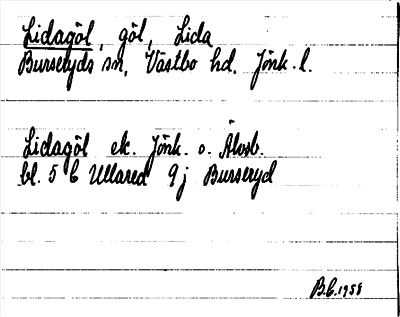 Lidagöl, göl, Lida
Burseryds sn, Västbo hd. Jönk. l.
Lidagöl ek. Jönk. o. Älvsb.
bl. 5 C Ullared 9j Burseryd
B.C. 1958